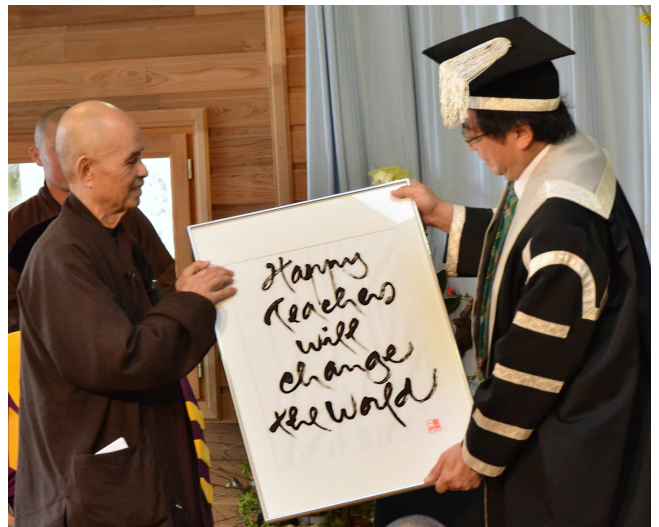 Happy
Teachers
will
change
the world